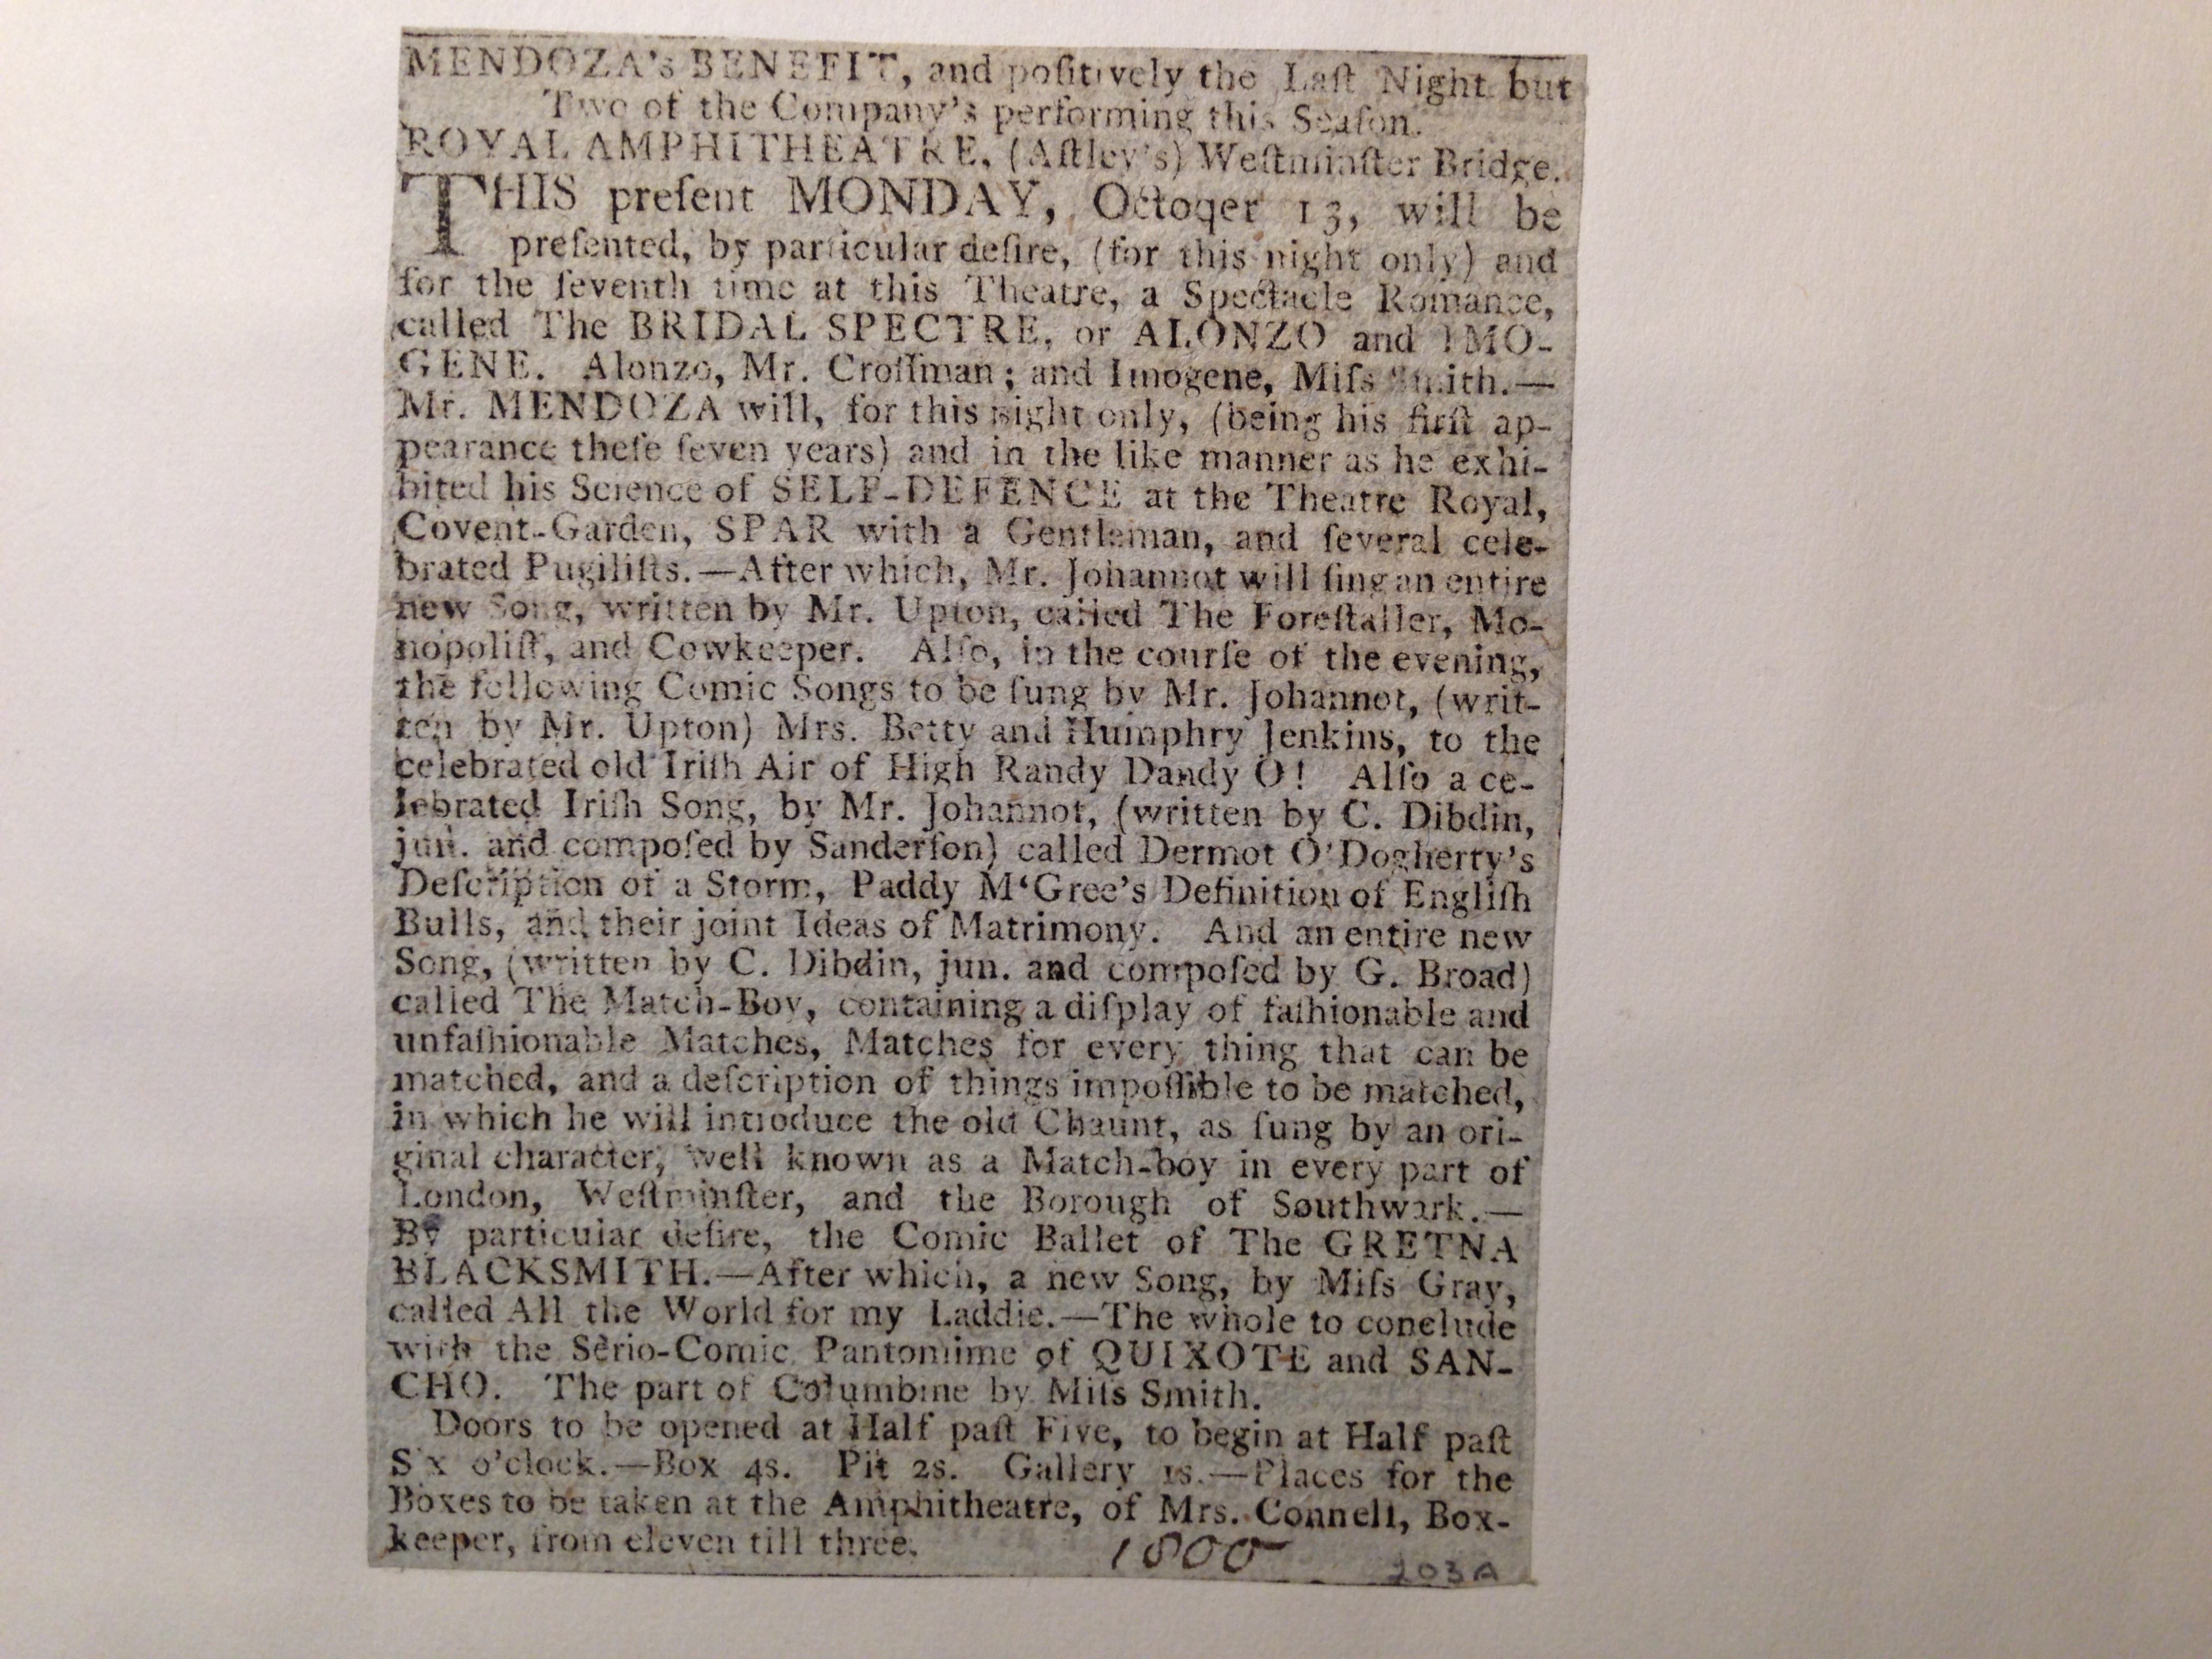 MENDOZA's BENEFIT, and poſitively the Laſt Night but
Two of the Company's performing this Seaſon.
ROYAL AMPHITHEATRE, (Aſtley's) Weſtminſter Bridge.
THIS preſent MONDAY, Octoqer 13, will be
preſented, by particular deſire, (for this night only) and
for the ſeventh time at this Theatre, a Spectacle Romance,
called The BRIDAL SPECTRE, or ALONZO and IMO-
GENE. Alonzo, Mr. Croſſman; and Imogene, Miſs Smith.—
Mr. MENDOZA will, for this night only, (being his firſt ap-
pearance theſe ſeven years) and in the like manner as he exhi-
bited his Science of SELF-DEFENCE at the Theatre Royal,
Covent-Garden, SPAR with a Gentleman, and ſeveral cele-
brated Pugiliſts.—After which, Mr. Johannot will ſing an entire
new Song, written by Mr. Upton, called The Foreſtaller, Mo-
nopoliſt, and Cowkeeper. Alſo, in the courſe of the evening,
the following Comic Songs to be ſung by Mr. Johannot, (writ-
ten by Mr. Upton) Mrs. Betty and Humphry Jenkins, to the
celebrated old Iriſh Air of High Randy Dandy O! Alſo a ce-
lebrated Iriſh Song, by Mr. Johannot, (written by C. Dibdin,
jun. and compoſed by Sanderſon) called Dermot O'Dogherty's
Deſcription of a Storm, Paddy M‘Gree's Definition of Engliſh
Bulls, and their joint Ideas of Matrimony. And an entire new
Song, (written by C. Dibdin, jun. and compoſed by G. Broad)
called The Match-Boy, containing a diſplay of faſhionable and
unfaſhionable Matches, Matches for every thing that can be
matched, and a deſcription of things impoſſible to be matched,
in which he will introduce the old Chaunt, as ſung by an ori-
ginal character, well known as a Match-boy in every part of
London, Weſtminſter, and the Borough of Southwark.—
By particular deſire, the Comic Ballet of The GRETNA
BLACKSMITH.—After which, a new Song, by Miſs Gray,
called All the World for my Laddie.—The whole to conclude
with the Serio-Comic Pantomime of QUIXOTE and SAN-
CHO. The part of Columbine by Miſs Smith.
Doors to be opened at Half paſt Five, to begin at Half paſt
Six o'clock.—Box 4s. Pit 2s. Gallery 1s.—Places for the
Boxes to be taken at the Amphitheatre, of Mrs. Connell, Box-
keeper, from eleven till three.
1800
203A